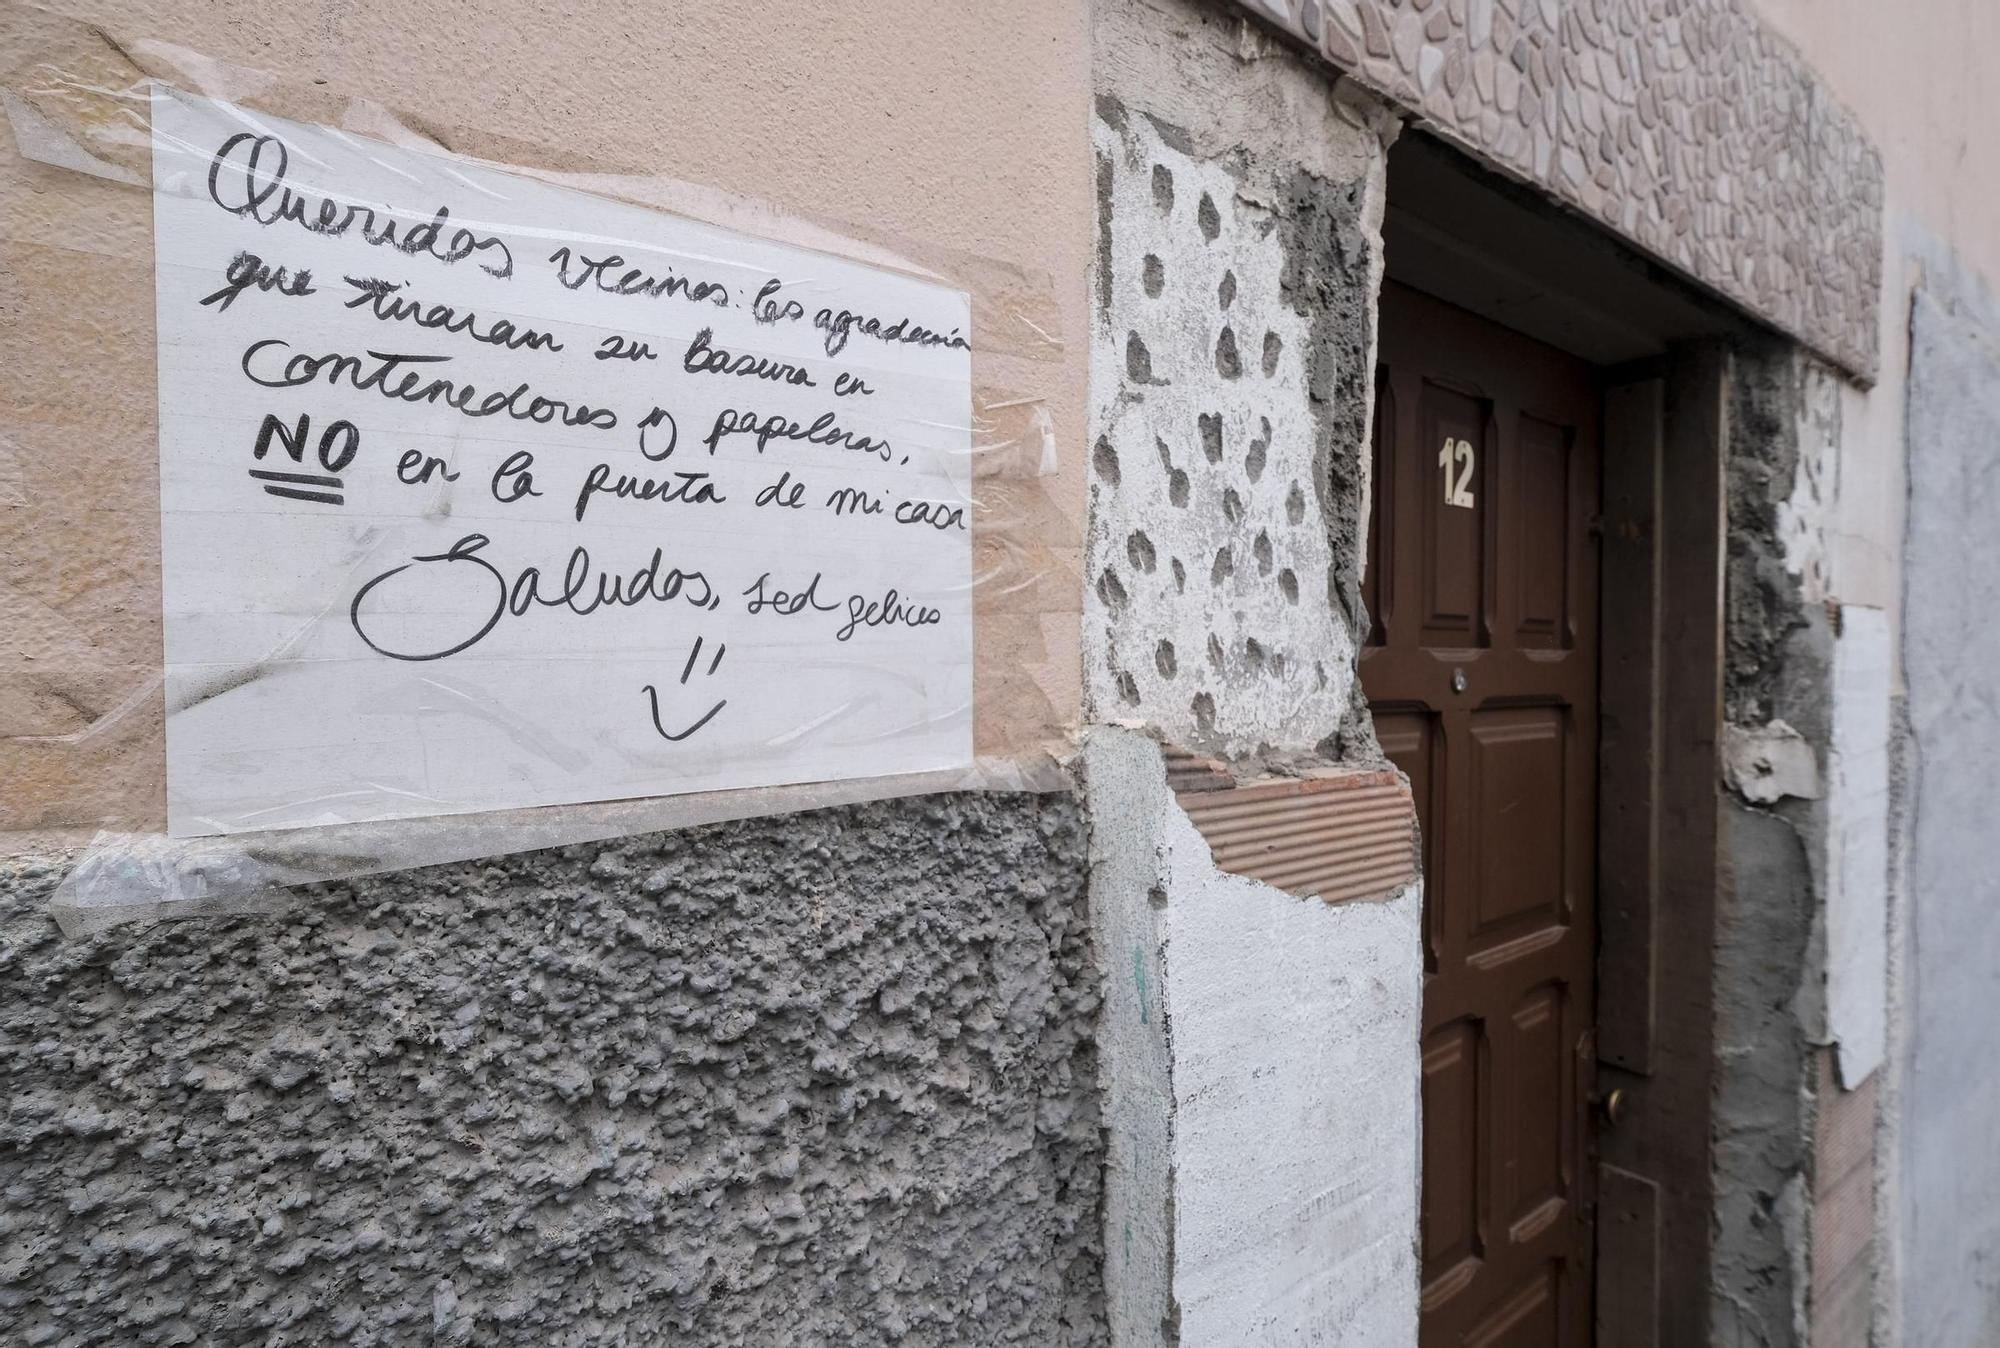 Queridos vecinos: les agradecería
que tiraran su basura en
contenedores y papeleras,
NO en la puerta de mi casa
Saludos, sed felices
12